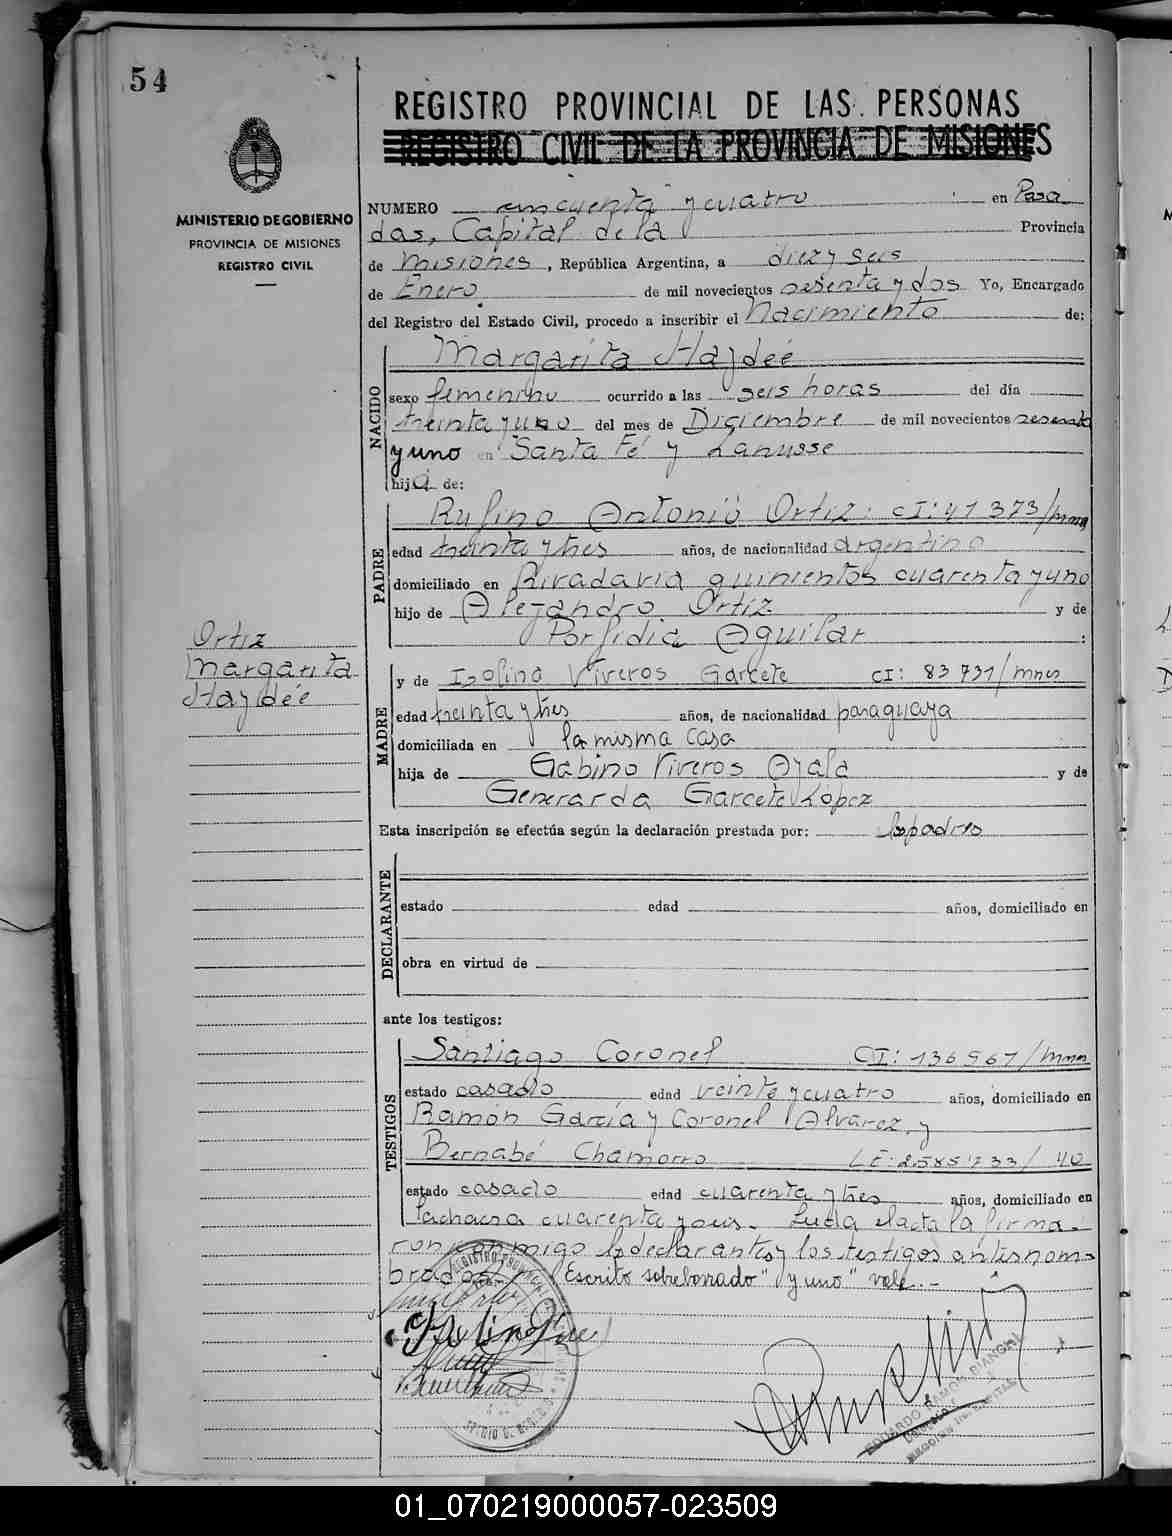 54
REGISTRO PROVINCIAL DE LAS PERSONAS
REGISTRO CIVIL DE LA PROVINCIA DE MISIONES
MINISTERIO DE GOBIERNO
PROVINCIA DE MISIONES
REGISTRO CIVIL
NUMERO cincuenta y cuatro en Posa
das, Capital de la Provincia
de Misiones, República Argentina, a diez y seis
de Enero de mil novecientos sesenta y dos Yo, Encargado
del Registro del Estado Civil, procedo a inscribir el Nacimiento de:
NACIDO
Margarita Haydée
sexo femenino ocurrido a las seis horas del día
treinta y uno del mes de Diciembre de mil novecientos sesenta
y uno en Santa Fé y Lanusse
hija de:
PADRE
Rufino Antonio Ortiz: CI: 41 373/mnes
edad treinta y tres años, de nacionalidad argentino
domiciliado en Rivadavia quinientos cuarenta y uno
hijo de Alejandro Ortiz y de
Porfidia Aguilar :
Ortiz
Margarita
Haydée
MADRE
y de Isolina Viveros Garcete CI: 83 731/mnes
edad treinta y tres años, de nacionalidad paraguaya
domiciliada en la misma casa
hija de Gabino Viveros Ayala y de
Generarda Garcete López
Esta inscripción se efectúa según la declaración prestada por: los padres
DECLARANTE
estado edad años, domiciliado en
obra en virtud de
ante los testigos:
TESTIGOS
Santiago Coronel CI: 136567/mnes
estado casado edad veinte y cuatro años, domiciliado en
Ramón García y Coronel Alvarez, y
Bernabé Chamorro LE: 2585733/40
estado casado edad cuarenta y tres años, domiciliado en
la chacra cuarenta y seis. Leida el acta la firma-
ron conmigo los declarantes y los testigos antes nom-
brados. Escrito sobreborrado "y uno" vale.-
EDUARDO RAMON BIANCHI
01_070219000057-023509